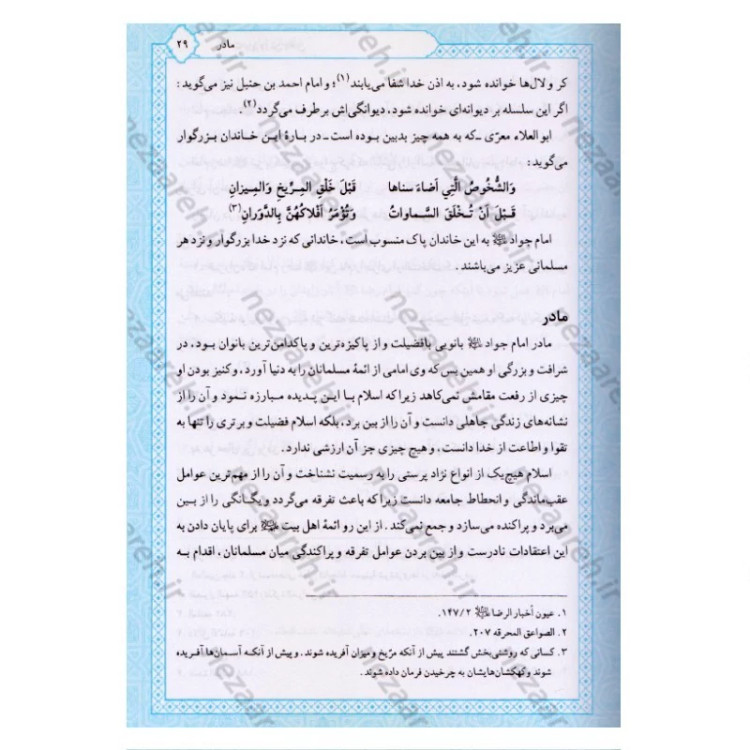 مادر ۲۹
کر و لال‌ها خوانده شود، به اذن خدا شفا می‌یابند(۱)؛ و امام احمد بن حنبل نیز می‌گوید:
اگر این سلسله بر دیوانه‌ای خوانده شود، دیوانگی‌اش برطرف می‌گردد(۲).
ابوالعلاء معرّی ـ که به همه چیز بدبین بوده است ـ در بارهٔ این خاندان بزرگوار
می‌گوید:
وَالشُّخُوصُ الَّتِي أضاءَ سناها قَبْلَ خَلْقِ المِرِّيخِ وَالمِيزانِ
قَبْلَ أنْ تُخْلَقَ السَّماواتُ وَتُؤْمَرُ أفْلاكُهُنَّ بِالدَّوَرانِ(۳)
امام جواد ﷺ به این خاندان پاک منسوب است، خاندانی که نزد خدا بزرگوار و نزد هر
مسلمانی عزیز می‌باشند.
مادر
مادر امام جواد ﷺ بانویی بافضیلت و از پاکیزه‌ترین و پاکدامن‌ترین بانوان بود، در
شرافت و بزرگی او همین بس که وی امامی از ائمهٔ مسلمانان را به دنیا آورد، و کنیز بودن او
چیزی از رفعت مقامش نمی‌کاهد زیرا که اسلام با این پدیده مبارزه نمود و آن را از
نشانه‌های زندگی جاهلی دانست و آن را از بین برد، بلکه اسلام فضیلت و برتری را تنها به
تقوا و اطاعت از خدا دانست، و هیچ چیزی جز آن ارزشی ندارد.
اسلام هیچ‌یک از انواع نژاد پرستی را به رسمیت نشناخت و آن را از مهم‌ترین عوامل
عقب‌ماندگی و انحطاط جامعه دانست زیرا که باعث تفرقه می‌گردد و یگانگی را از بین
می‌برد و پراکنده می‌سازد و جمع نمی‌کند. از این رو ائمهٔ اهل بیت ﷺ برای پایان دادن به
این اعتقادات نادرست و از بین بردن عوامل تفرقه و پراکندگی میان مسلمانان، اقدام به
۱. عیون أخبار الرضا ﷺ ۱۴۷/۲.
۲. الصواعق المحرقه ۲۰۷.
۳. کسانی که روشنی‌بخش گشتند پیش از آنکه مرّیخ و میزان آفریده شوند. و پیش از آنکه آسمان‌ها آفریده
شوند و کهکشان‌هایشان به چرخیدن فرمان داده شوند.
nezaareh.ir